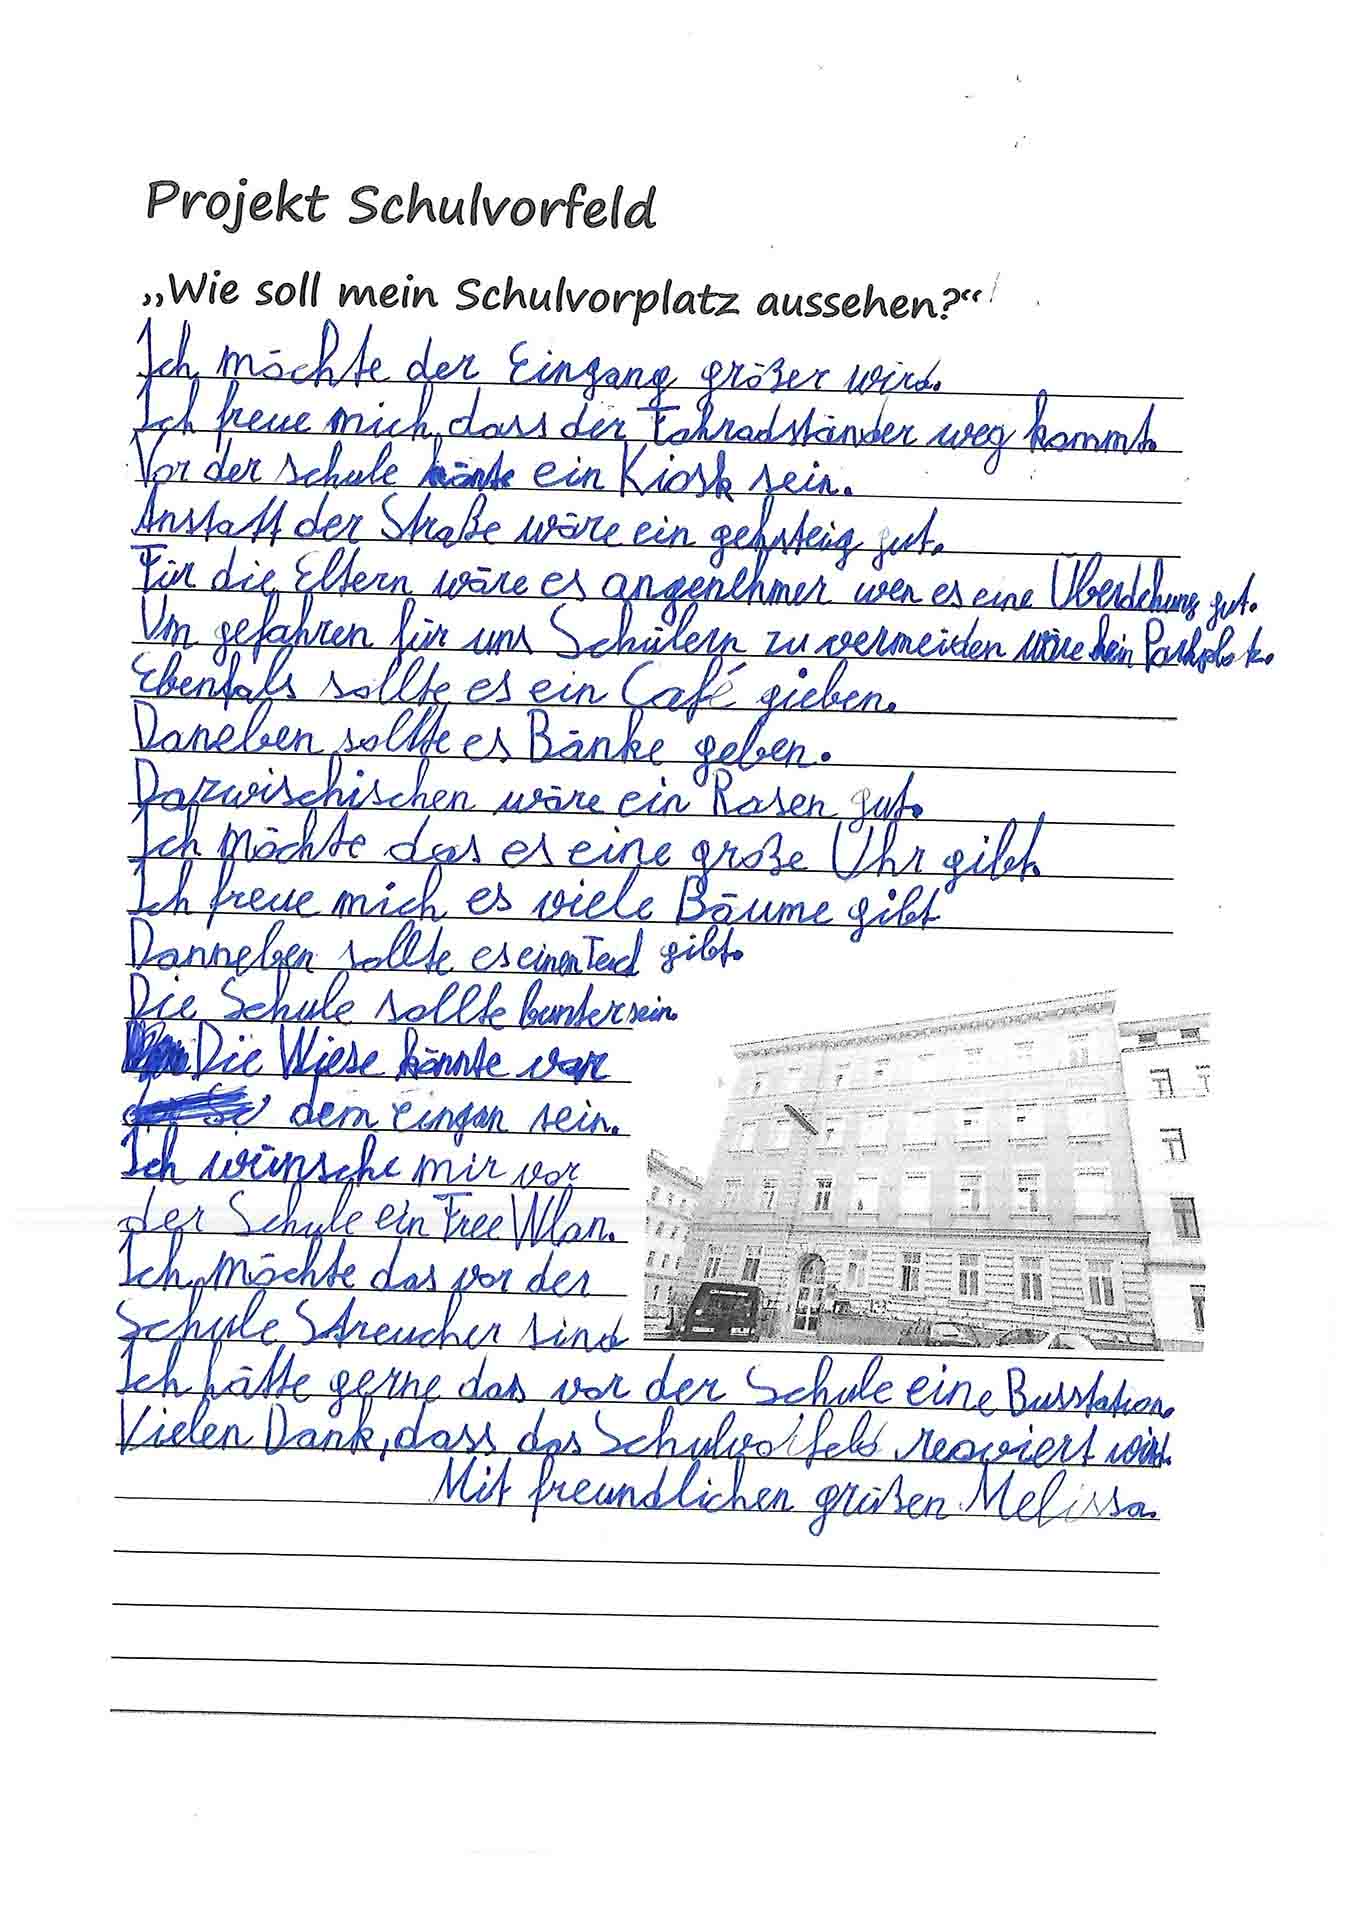 Projekt Schulvorfeld
„Wie soll mein Schulvorplatz aussehen?“
Ich möchte der Eingang größer wird.
Ich freue mich, dass der Fahradständer weg kommt.
Vor der schule könte ein Kiosk sein.
Anstatt der Straße wäre ein gehsteig gut.
Für die Eltern wäre es angenehmer wen es eine Überdchung gut.
Um gefahren für uns Schülern zu vermeiden wäre kein Parkplatz.
Ebenfals sollte es ein Café gieben.
Daneben sollte es Bänke geben.
Dazwischischen wäre ein Rasen gut.
Ich möchte das es eine große Uhr gibt.
Ich freue mich es viele Bäume gibt
Danneben sollte es einen gibt.
Die Schule sollte bunter sein.
Die Wiese könnte vor
dem eingan sein.
Ich wünsche mir vor
der Schule ein Free Wlan.
Ich möchte das vor der
Schule Streucher sind
Ich hätte gerne das vor der Schule eine Busstation.
Vielen Dank, dass das Schulvorfeld wirt.
Mit freundlichen grüßen Melissa.